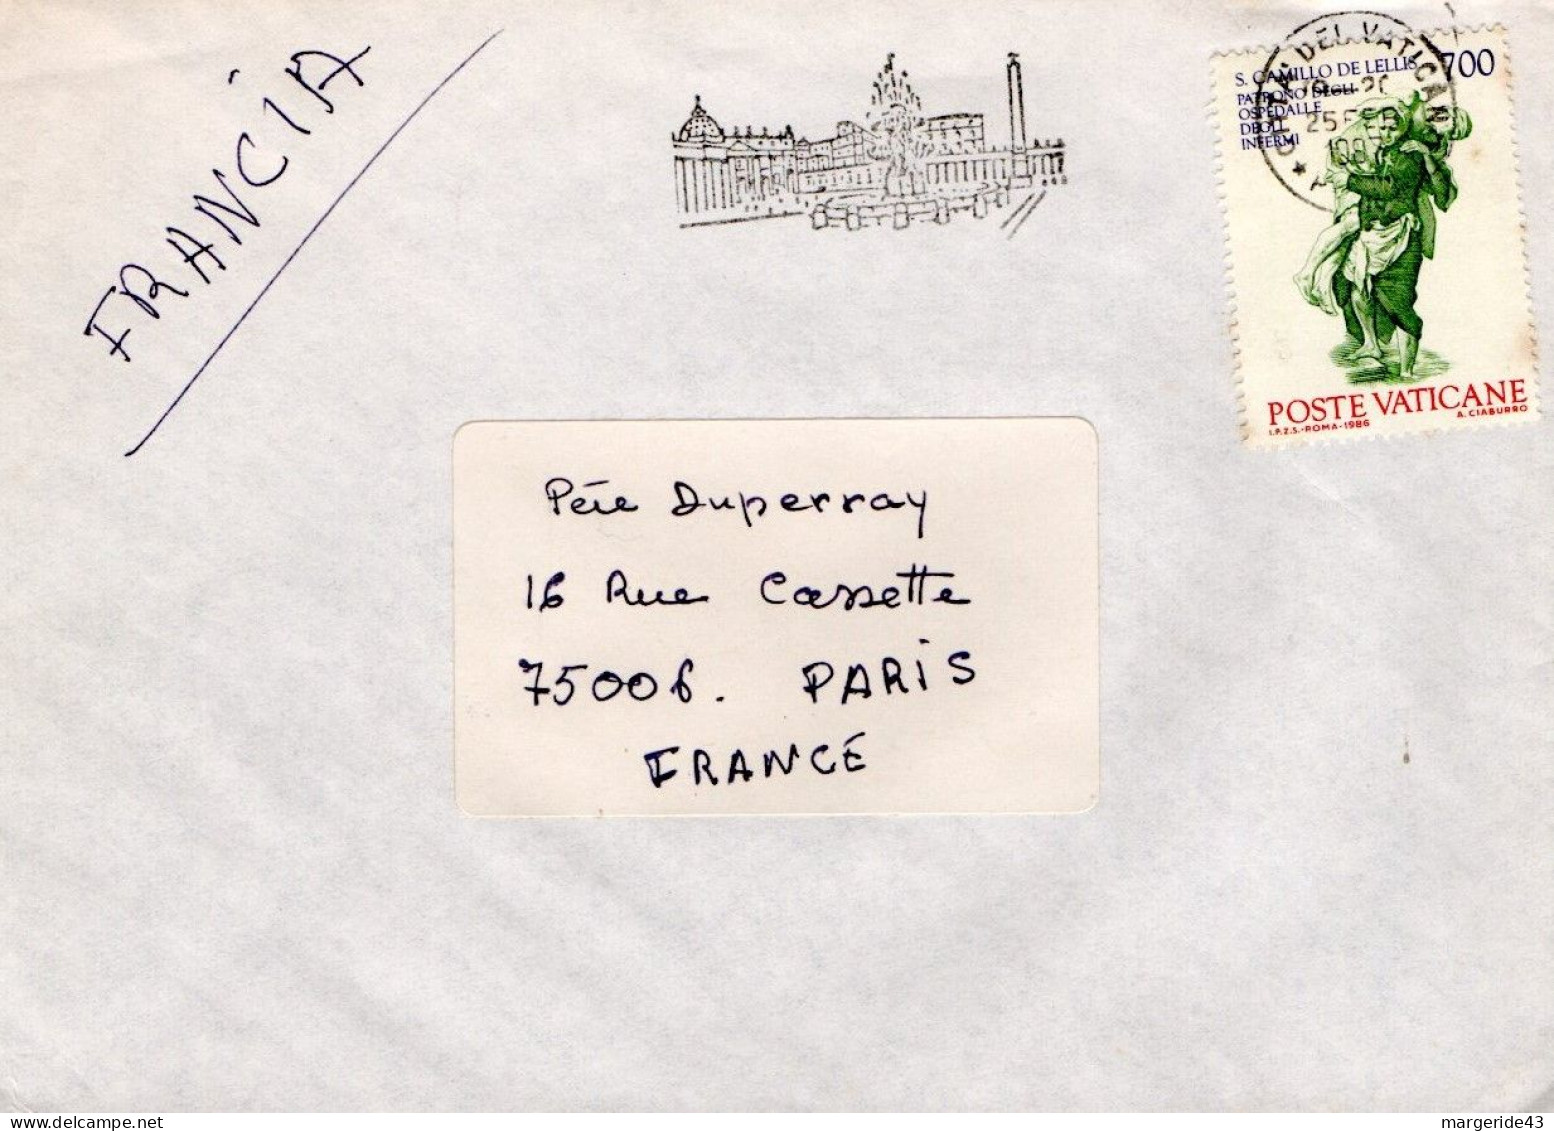 FRANCIA
CITTA' DEL VATICANO
25 FEB
S. CAMILLO DE LELLIS 700
PATRONO DEGLI
OSPEDALI E
DEGLI
INFERMI
POSTE VATICANE
I.P.Z.S.-ROMA-1986 A. CIABURRO
Père Duperray
16 Rue Cassette
75006. PARIS
FRANCE
margeride43